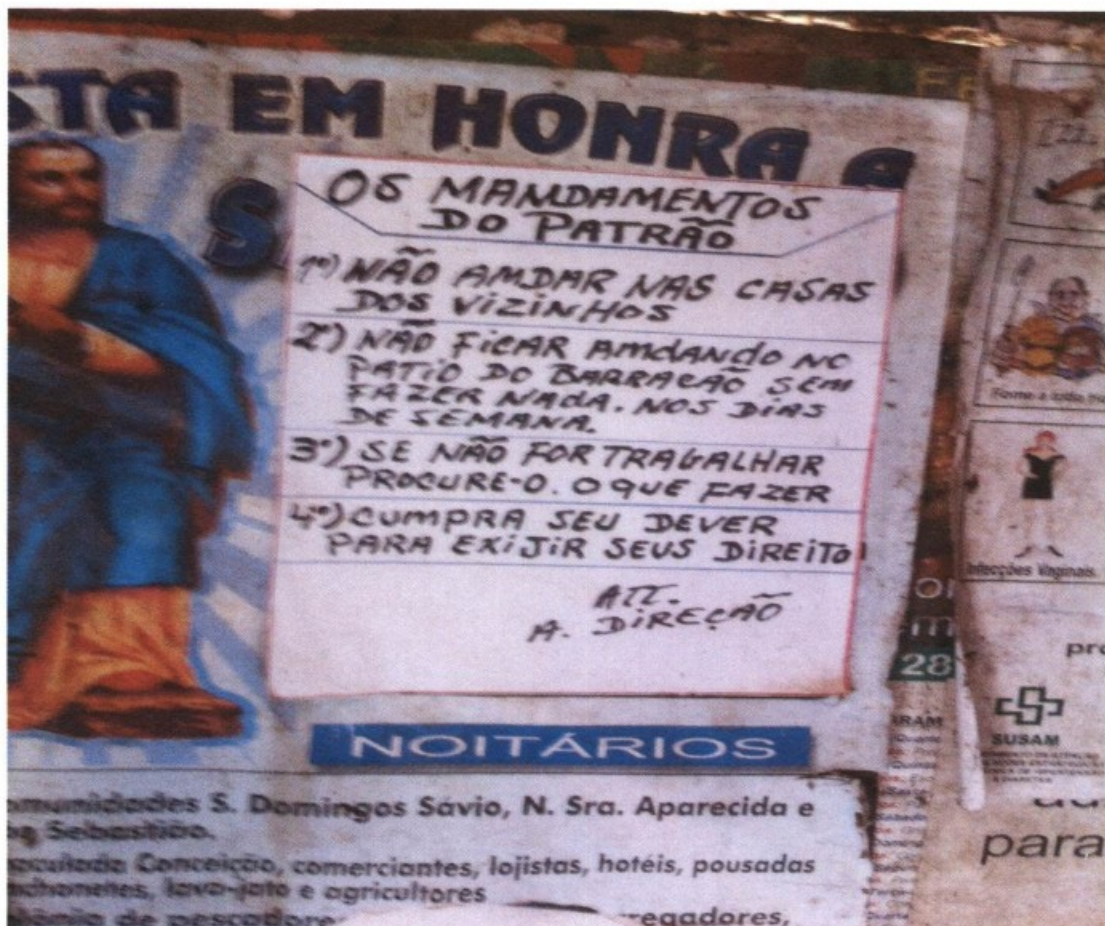 STA EM HONRA A
OS MANDAMENTOS
DO PATRÃO
1º) NÃO AMDAR NAS CASAS
DOS VIZINHOS
2º) NÃO FICAR AMDANDO NO
PATIO DO BARRACÃO SEM
FAZER NADA. NOS DIAS
DE SEMANA.
3º) SE NÃO FOR TRAGALHAR
PROCURE-O. O QUE FAZER
4º) CUMPRA SEU DEVER
PARA EXIJIR SEUS DIREITO
ATT.
A. DIREÇÃO
28
NOITÁRIOS
omunidades S. Domingos Sávio, N. Sra. Aparecida e
Sebastião.
aculada Conceição, comerciantes, lojistas, hotéis, pousadas
nchonetes, lava-jato e agricultores
de pescadore
regadores,
Fome a
Infecções Vaginais.
pro
SUSAM
para